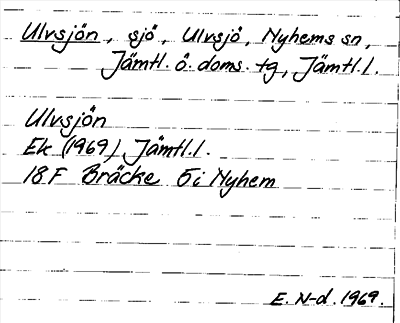 Ulvsjön, sjö, Ulvsjö, Nyhems sn,
Jämtl. ö. doms. tg, Jämtl. l.
Ulvsjön
Ek (1969) Jämtl. l.
18 F Bräcke 5 i Nyhem
E. N-d. 1969.